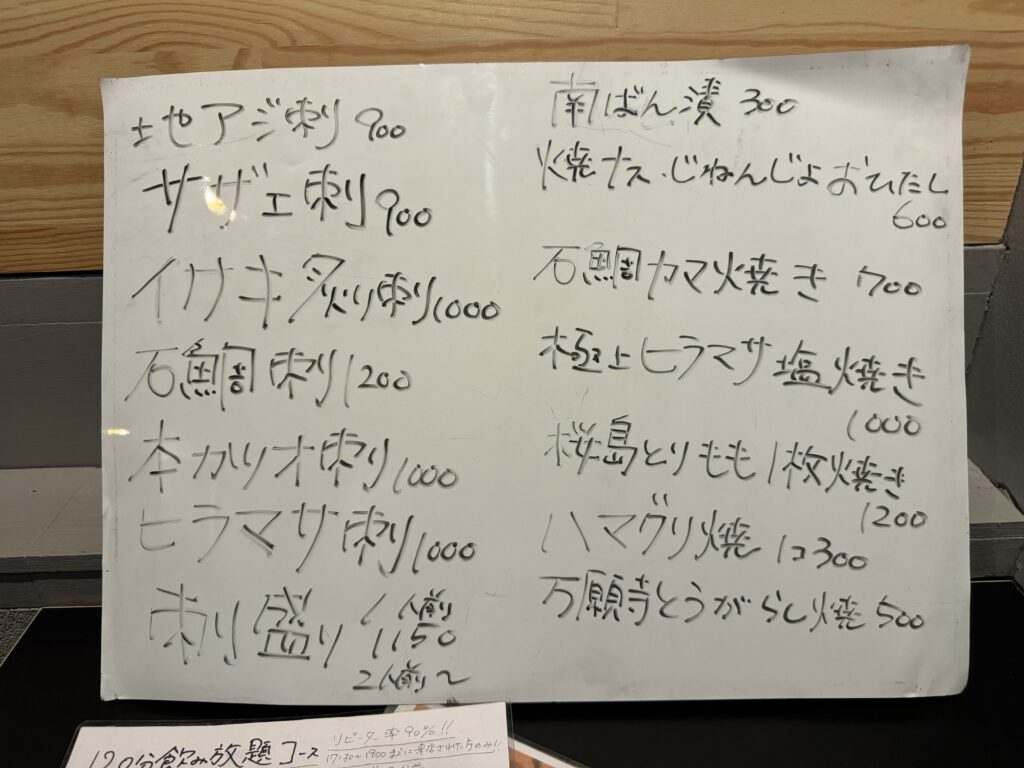 地アジ刺 900
サザエ刺 900
イサキ炙り刺り1000
石鯛刺り1200
本カツオ刺り1000
ヒラマサ刺り1000
刺り盛り 1人前
1150
2人前〜
南ばん漬 300
焼ナス・じねんじょおひたし
600
石鯛カマ焼き 700
極上ヒラマサ塩焼き
1000
桜島とりもも1枚焼き
1200
ハマグリ焼 1コ300
万願寺とうがらし焼 500
120分飲み放題コース
リピーター率90%!!
17:30〜19:00までに来店された方のみ!!